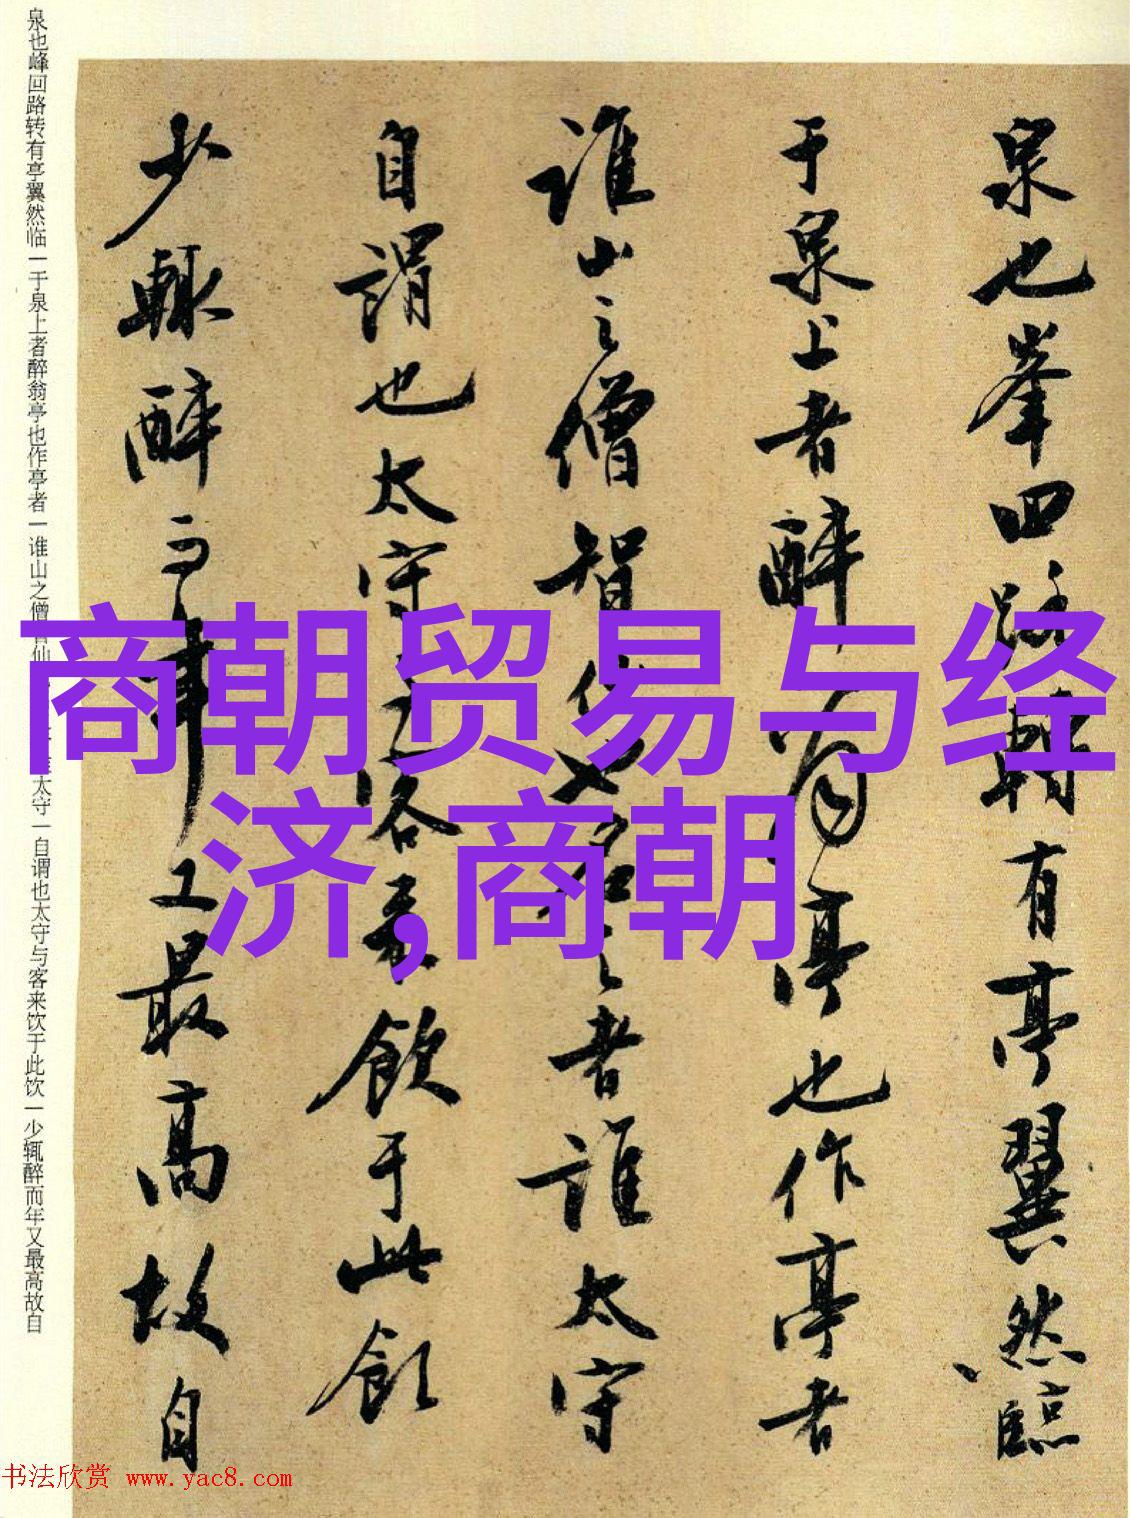 商朝贸易与经
济,商朝
泉也峯回路轉有亭翼然臨
于泉上者醉翁亭也作亭者
誰山之僧智仙也名之者誰太守
自謂也太守与客来飲于此飲
少輒醉而年又最高故自
泉也峰回路转有亭翼然临一于泉上者醉翁亭也作亭者一谁山之僧智仙太守一自谓也太守与客来饮于此饮一少辄醉而年又最高故自
书法欣赏 www.yac8.com